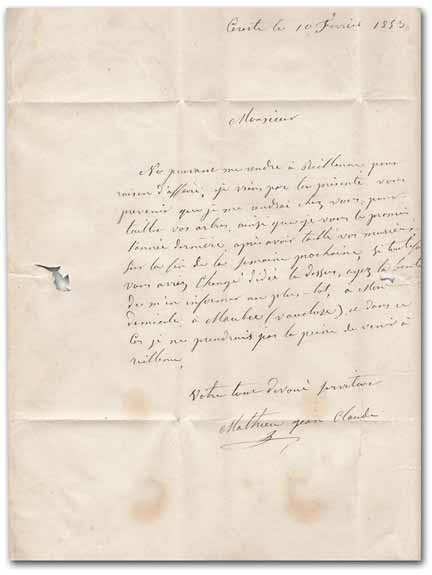 Cereste le 10 Février 1853
Monsieur
Ne pouvant me rendre à Reillenne, pour
raison d'affaire, je viens par la présente vous
prevenir que je me rendrai chez vous, pour
tailler vos arbres, ainsi que je vous le promis
l'année dernière, après avoir taillé vos muriers,
sur la fin de la semaine prochaine, Si toutefois
vous avrez Changé d'idée la dessus, ayez la bonté
de m'en informer au plus-tôt, à Mon
domicile à Maubec (vaucluse), et dans ce
Cas je ne prendrais pas la peine de venir à
reillenne,
Votre tout devoué serviteur
Mathieu jean Claude